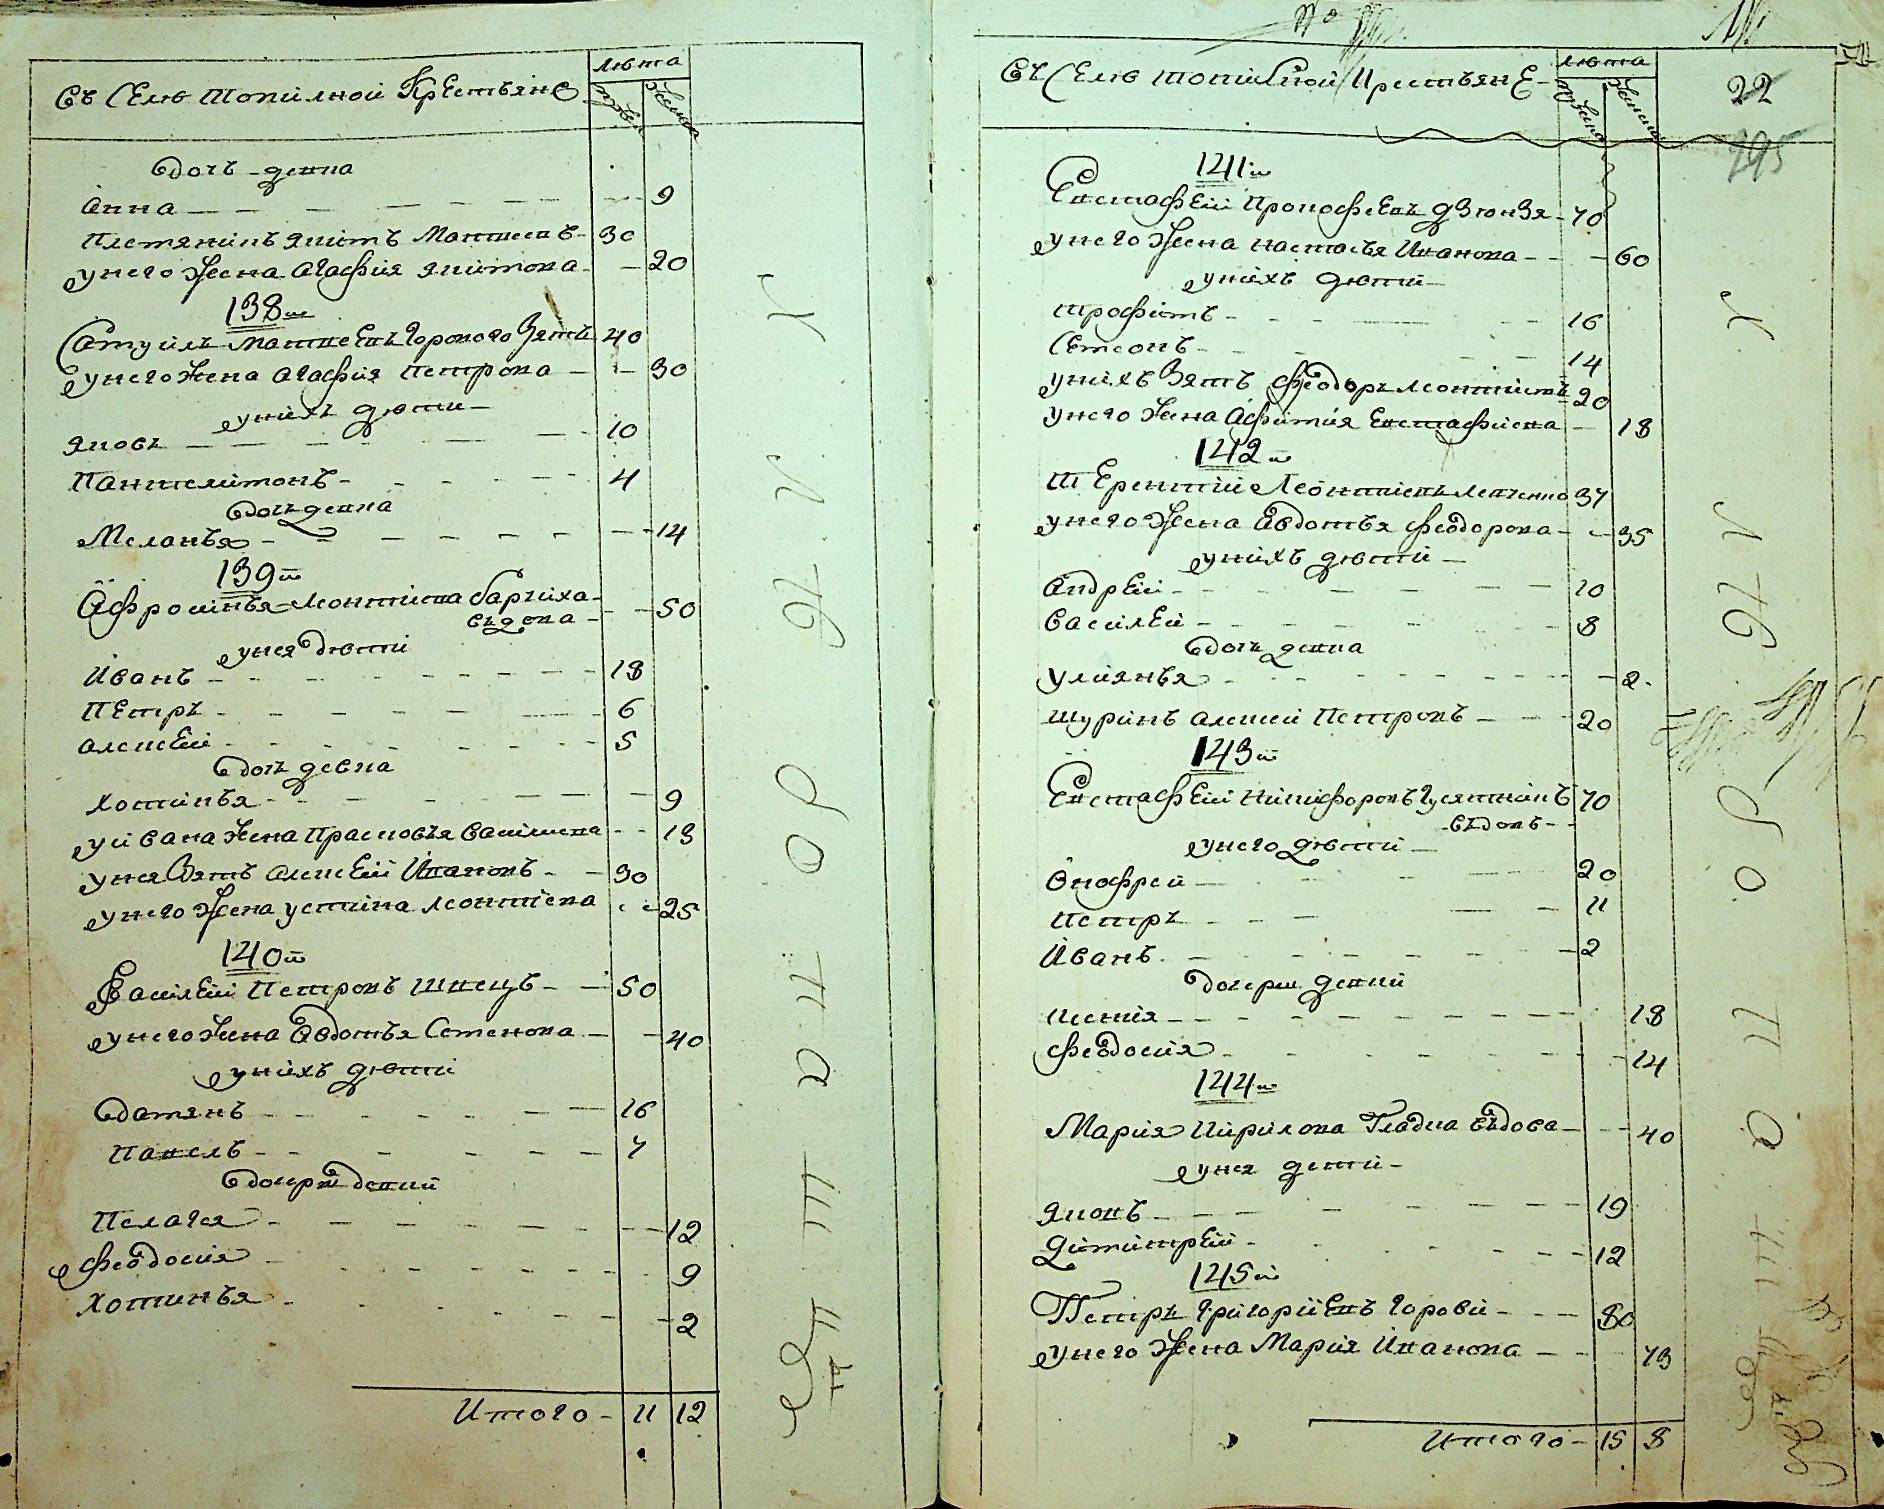 въ Селѣ Топилной Крестьяне
лѣта
мужеск
женска
вдочъ девка
Анна 9
Племянникъ Якимъ Матвеевъ 30
унего жена Агафия Якимова 20
138й
Самуйлъ Матвеевъ Горового зять 40
унего жена Агафия Петрова 30
унихъ дѣти
Яковъ 10
Пантелимонъ 4
вдочъ девка
Меланья 14
139й
Афросинья Леонтиева Барчиха 50
въдова
унея дѣти
Иванъ 18
Петръ 6
Алексей 5
вдочъ девка
Хотинья 9
уивана жена Прасковья Василиева 13
унея зять Алексей Ивановъ 30
унего жена устина Леонтиева 25
140й
Василей Петровъ Швецъ 50
унего жена Евдотья Семенова 40
унихъ дѣти
Дамянъ 16
Павелъ 7
вдочери девки
Пелагея 12
Феодосия 9
Хотинья 2
Итого 11 12
въ Селѣ топилной Крестьяне
лѣта
мужеска
женска
22
295
141й
Евстафей Прокофьевъ Дзюндзя 70
унего жена настасья Иванова 60
унихъ дѣти
Трофимъ 16
Семеонъ 14
унихъ зять Феодоръ Леонтиевъ 20
унего жена Афимия Евстафиева 18
142й
Терентий Леонтиевъ Левченко 37
унего жена Евдотья Феодорова 35
унихъ дѣти
Андрей 10
Василей 8
вдочъ девка
Улиянья 2
шуринъ Алексей Петровъ 20
143й
Евстафей Никифоровъ Гусятникъ 70
въдовъ
унего дѣти
Онофрей 20
Петръ 11
Иванъ 2
дочери девки
Ксения 18
Феодосия 14
144й
Мария Кирилова Гладка въдова 40
унея дети
Яковъ 19
Димитрей 12
145й
Петръ Григориевъ Горовий 80
унего жена Мария Иванова 73
Итого 15 8